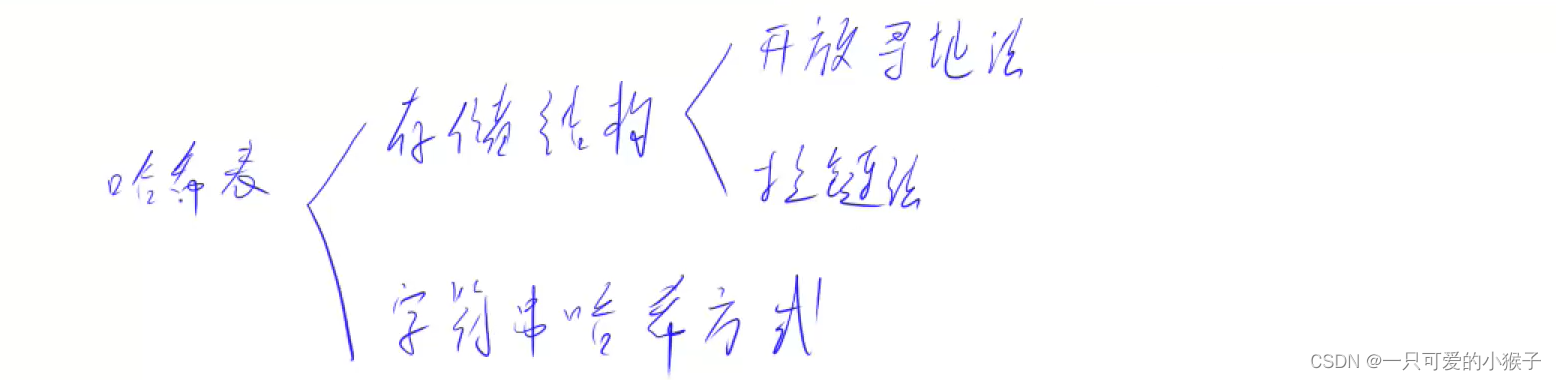 开放寻地法
存储结构
哈希表
拉链法
字符串哈希方式
CSDN @一只可爱的小猴子